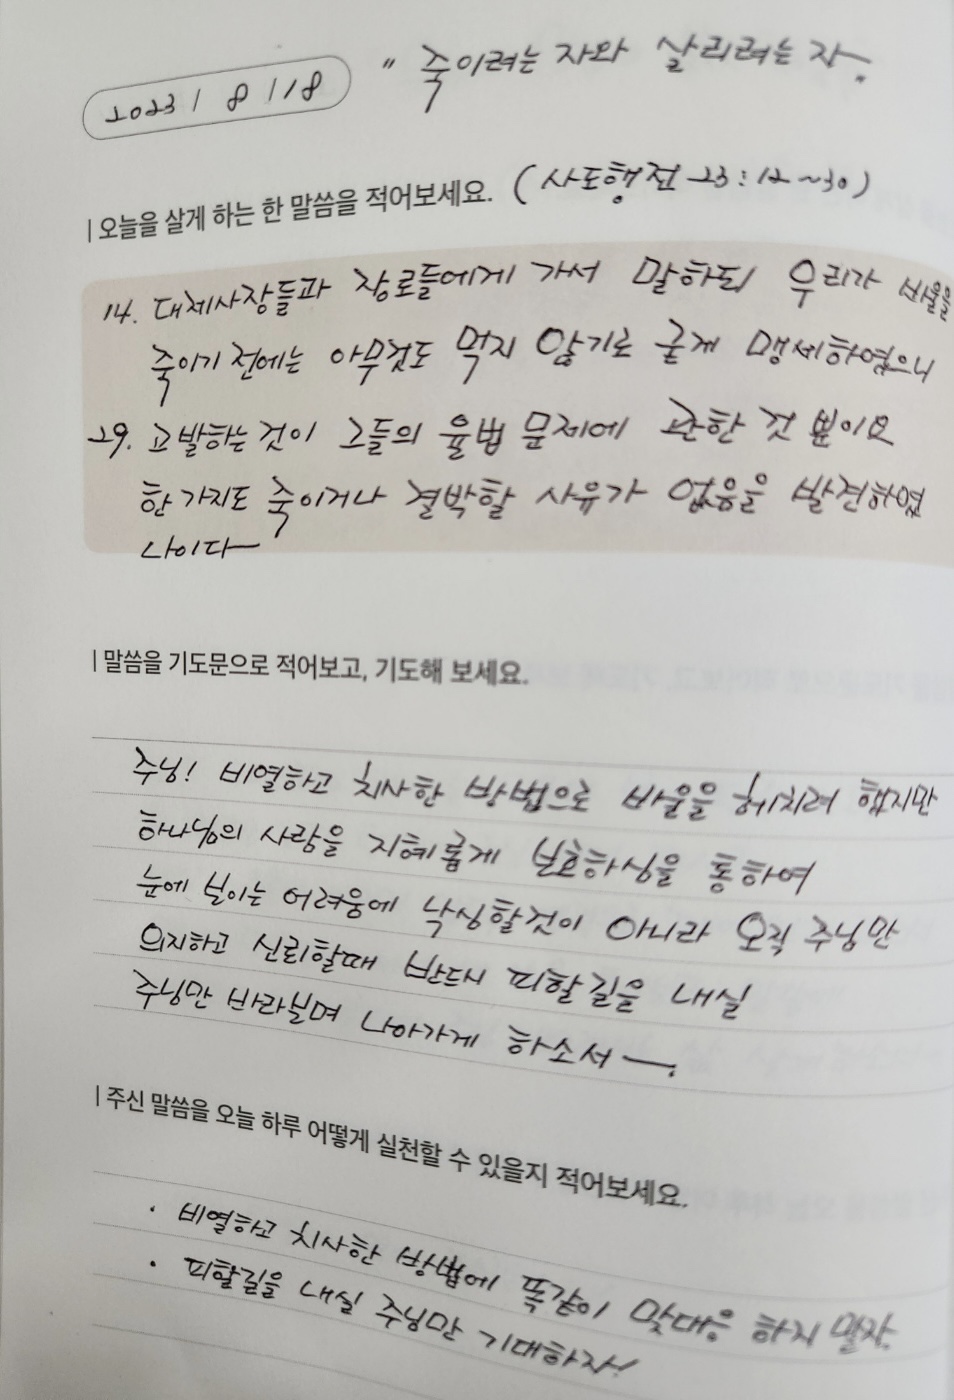 2023 / 8 / 18 " 죽이려는 자와 살리려는 자. "
| 오늘을 살게 하는 한 말씀을 적어보세요. (사도행전 23:12~30)
14. 대제사장들과 장로들에게 가서 말하되 우리가 바울을
죽이기 전에는 아무것도 먹지 않기로 굳게 맹세하였으니
29. 고발하는 것이 그들의 율법 문제에 관한 것 뿐이요
한 가지도 죽이거나 결박할 사유가 없음을 발견하였
나이다ㅡ
| 말씀을 기도문으로 적어보고, 기도해 보세요.
주님! 비열하고 치사한 방법으로 바울을 헤치려 했지만
하나님의 사람을 지혜롭게 보호하심을 통하여
눈에 보이는 어려움에 낙심할것이 아니라 오직 주님만
의지하고 신뢰할때 반드시 피할길을 내실
주님만 바라보며 나아가게 하소서ㅡ.
| 주신 말씀을 오늘 하루 어떻게 실천할 수 있을지 적어보세요.
· 비열하고 치사한 방법에 똑같이 맞대응 하지 말자.
· 피할길을 내실 주님만 기대하자!